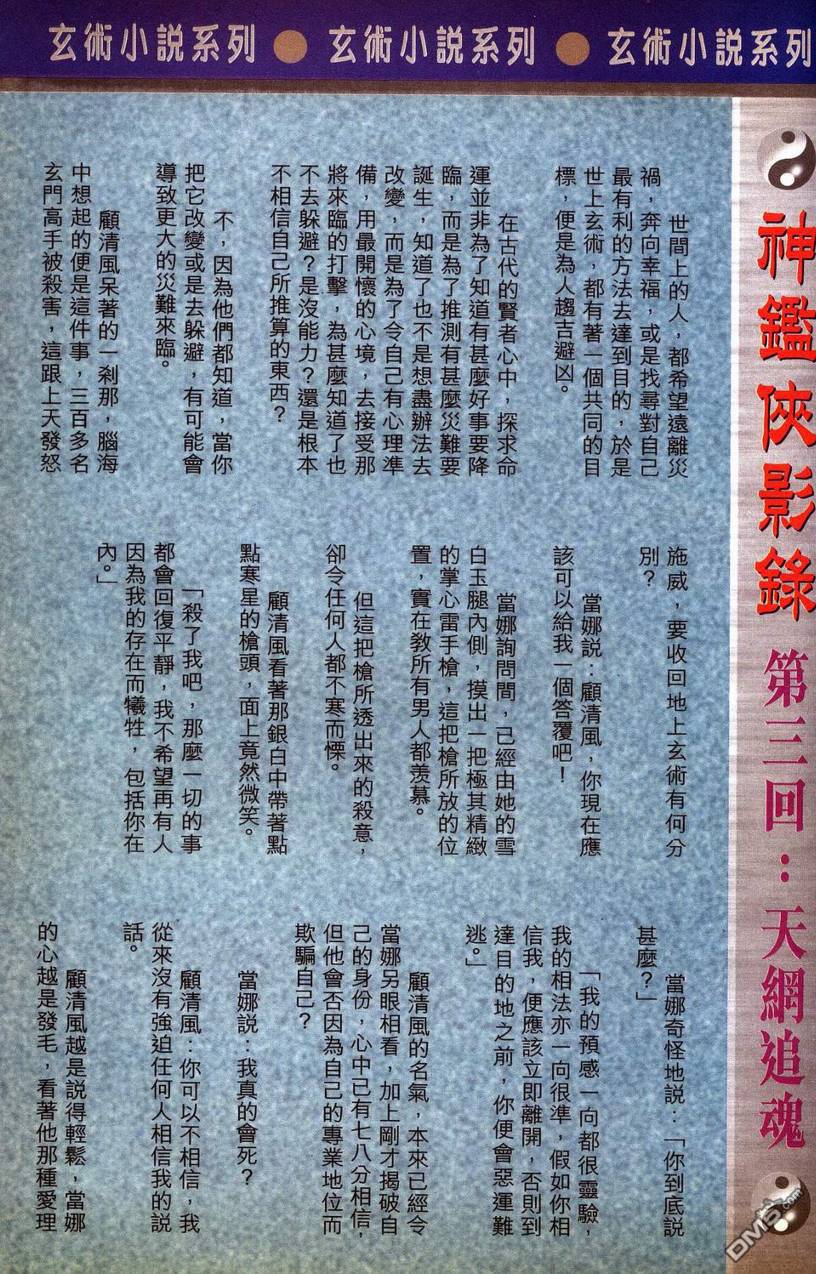 玄術小說系列●玄術小說系列●玄術小說系列
神鑑俠影錄
第三回：天網追魂
世間上的人，都希望遠離災
禍，奔向幸福，或是找尋對自己
最有利的方法去達到目的，於是
世上玄術，都有著一個共同的目
標，便是為人趨吉避凶。
在古代的賢者心中，探求命
運並非為了知道有甚麼好事要降
臨，而是為了推測有甚麼災難要
誕生，知道了也不是想盡辦法去
改變，而是為了令自己有心理準
備，用最開懷的心境，去接受那
將來臨的打擊，為甚麼知道了也
不去躲避？是沒能力？還是根本
不相信自己所推算的東西？
不，因為他們都知道，當你
把它改變或是去躲避，有可能會
導致更大的災難來臨。
顧清風呆著的一剎那，腦海
中想起的便是這件事，三百多名
玄門高手被殺害，這跟上天發怒
施威，要收回地上玄術有何分
別？
當娜說：顧清風，你現在應
該可以給我一個答覆吧！
當娜詢問間，已經由她的雪
白玉腿內側，摸出一把極其精緻
的掌心雷手槍，這把槍所放的位
置，實在教所有男人都羨慕。
但這把槍所透出來的殺意，
卻令任何人都不寒而慄。
顧清風看著那銀白中帶著點
點寒星的槍頭，面上竟然微笑。
「殺了我吧，那麼一切的事
都會回復平靜，我不希望再有人
因為我的存在而犧牲，包括你在
內。」
當娜奇怪地說：「你到底說
甚麼？」
「我的預感一向都很靈驗，
我的相法亦一向很準，假如你相
信我，便應該立即離開，否則到
達目的地之前，你便會惡運難
逃。」
顧清風的名氣，本來已經令
當娜另眼相看，加上剛才揭破自
己的身份，心中已有七八分相信，
但他會否因為自己的專業地位而
欺騙自己？
當娜說：我真的會死？
顧清風：你可以不相信，我
從來沒有強迫任何人相信我的說
話。
顧清風越是說得輕鬆，當娜
的心越是發毛，看著他那種愛理
DM5.com